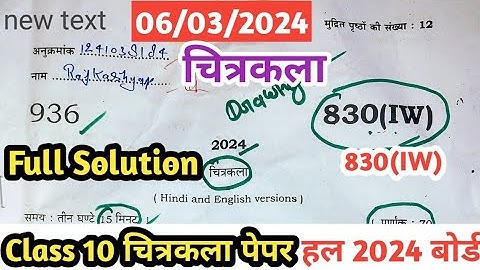 new text
06/03/2024
मुद्रित पृष्ठों की संख्या : 12
अनुक्रमांक
नाम Raj Kashyap
चित्रकला
Drawing
936
830(IW)
2024
Full Solution
चित्रकला
830(IW)
( Hindi and English versions )
समय : तीन घण्टे 15 मिनट
पूर्णांक : 70
Class 10 चित्रकला पेपर हल 2024 बोर्ड